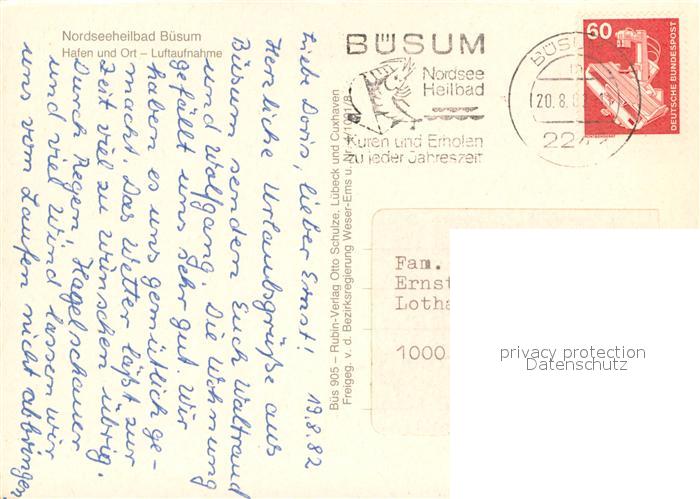 Nordseeheilbad Büsum
Hafen und Ort – Luftaufnahme
BÜSUM
Nordsee
Heilbad
Kuren und Erholen
zu jeder Jahreszeit
20.8.8
60
DEUTSCHE BUNDESPOST
19.8.82
Liebe Doris, lieber Ernst!
Herzliche Urlaubsgrüße aus
Büsum senden Euch Waltraud
und Wolfgang. Die Wohnung
gefällt uns sehr gut. Wir
haben es uns gemütlich ge-
macht. Das Wetter läßt zur
Zeit viel zu wünschen übrig.
Durch Regen, Hagelschauer
und viel Wind lassen wir
uns vom Laufen nicht abbringen
Büs 905 – Rubin-Verlag Otto Schulze, Lübeck und Cuxhaven
Freigeg. v. d. Bezirksregierung Weser-Ems u. Nr.
Fam.
Ernst
Lotha
1000
privacy protection
Datenschutz